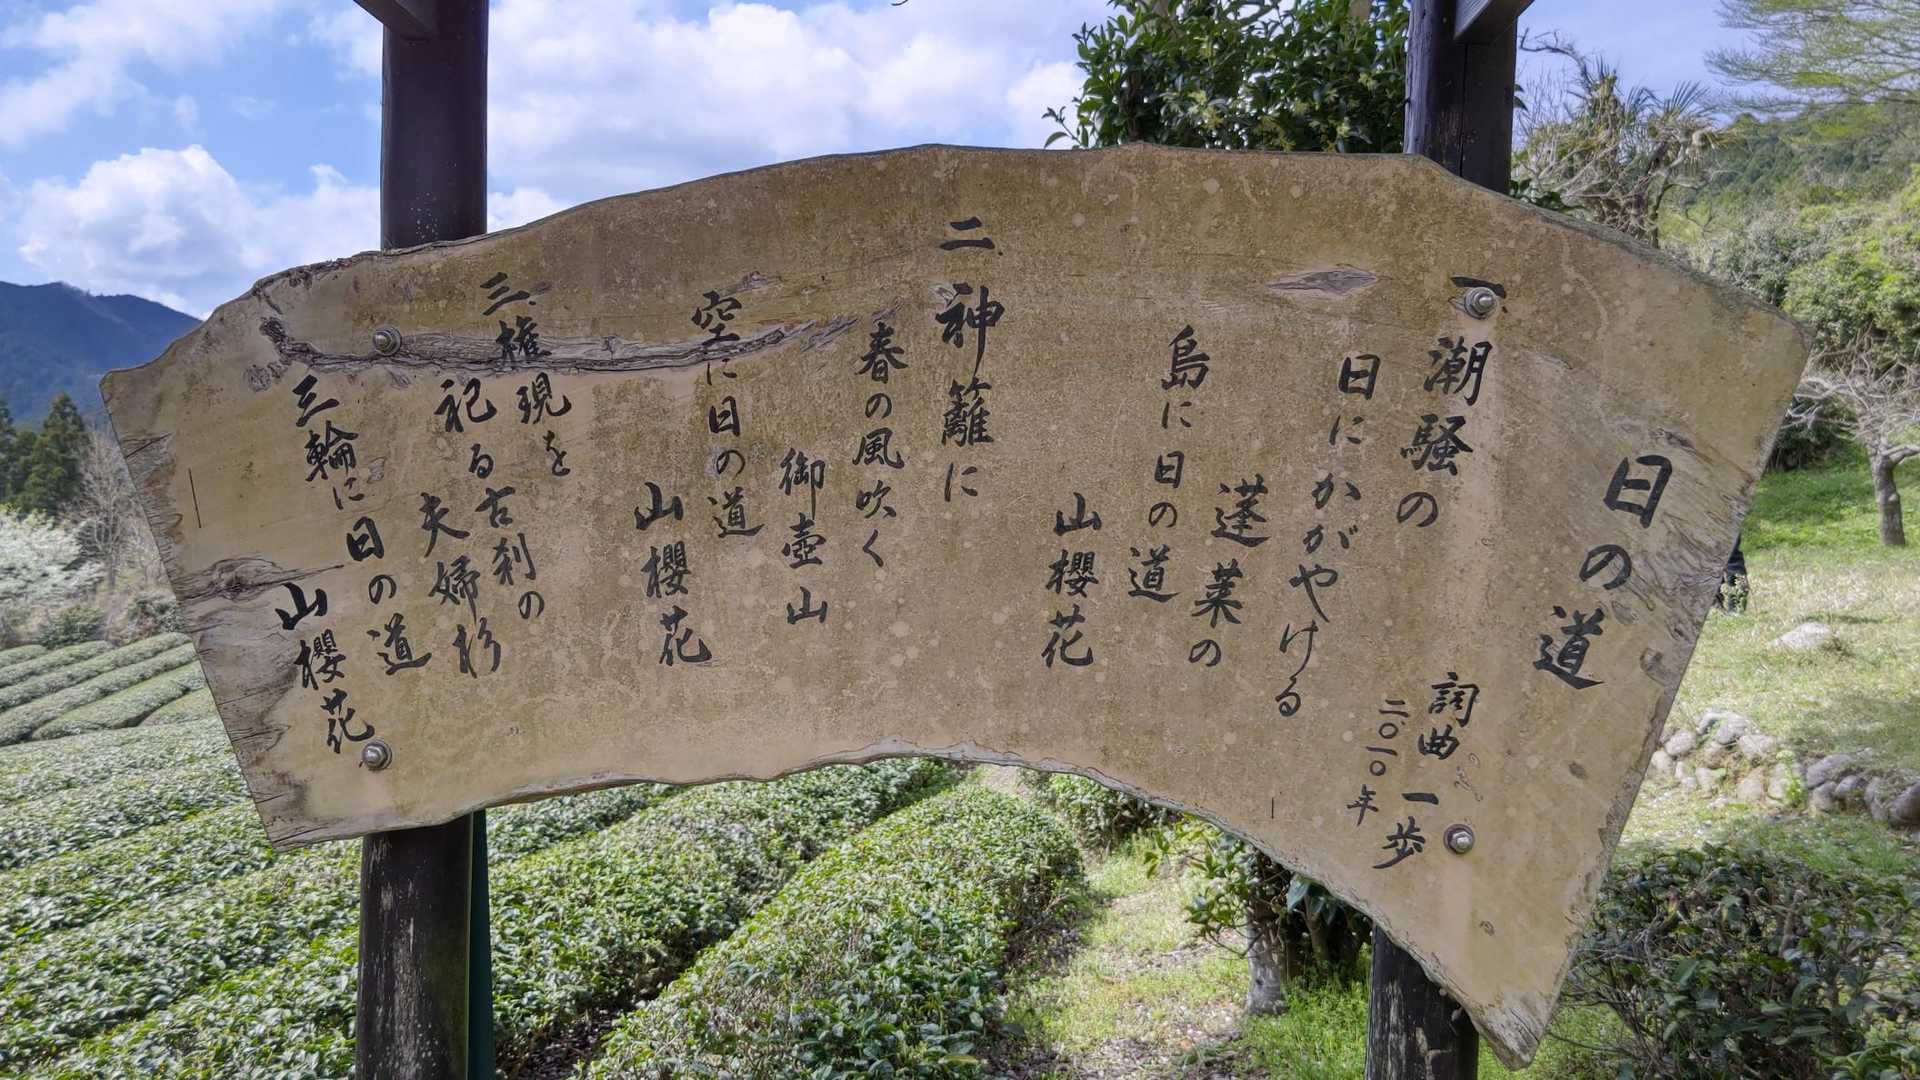 日の道
詞曲 一歩
二〇一〇年
一、潮騒の
日にかがやける
蓬莱の
島に日の道
山櫻花
二、神籬に
春の風吹く
御壺山
空に日の道
山櫻花
三、権現を
祀る古刹の
夫婦杉
三輪に日の道
山櫻花